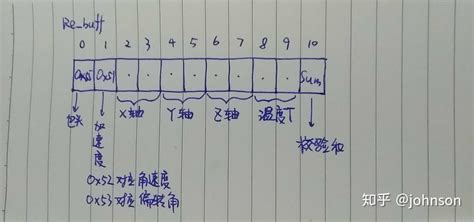 Re_buff
0 1 2 3 4 5 6 7 8 9 10
0x55 0x51 · · · · · · · · Sum
包头 加速度 X轴 Y轴 Z轴 温度T 校验和
0x52对应角速度
0x53对应偏转角
知乎 @johnson